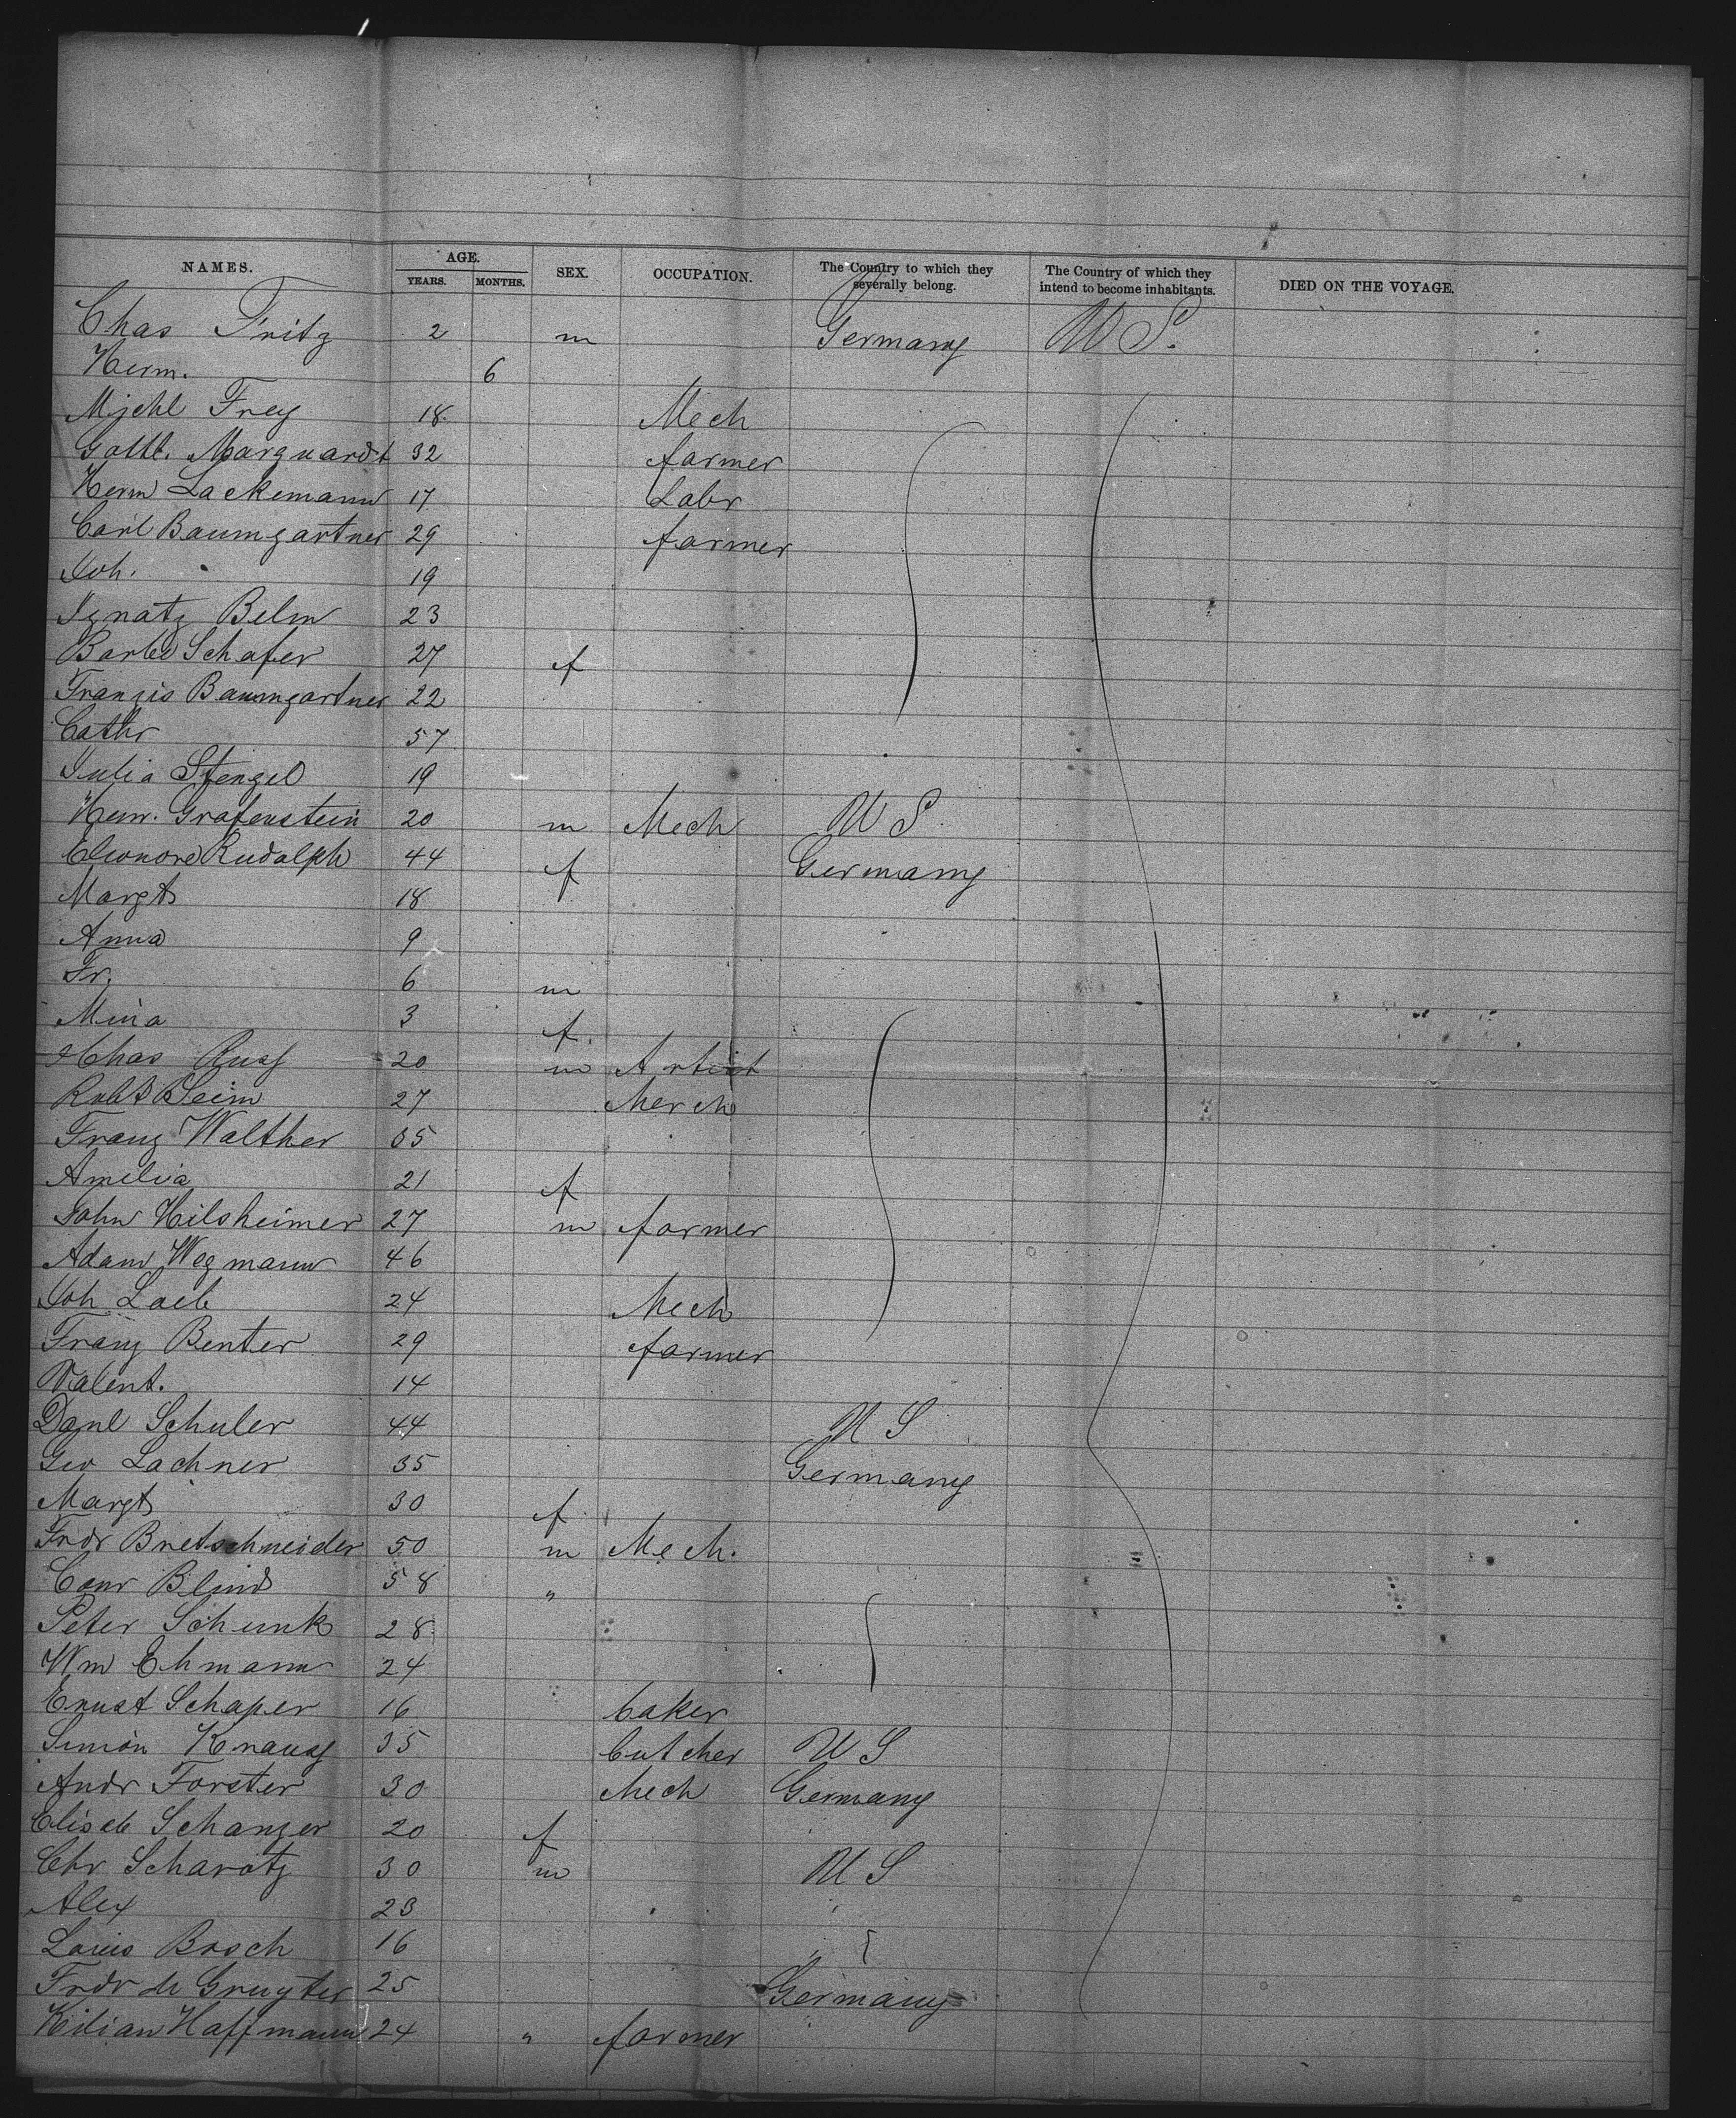 NAMES. AGE. YEARS. MONTHS. SEX. OCCUPATION. The Country to which they severally belong. The Country of which they intend to become inhabitants. DIED ON THE VOYAGE.
Chas Fritz 2 m Germany U S.
Herm. 6
Mjchl Frey 18 Mech
Gottl. Marquardt 32 farmer
Herm Lackemann 17 Labr
Carl Baumgartner 29 farmer
Joh. 19
Ignatz Belm 23
Barbe Schafer 27 f
Franzis Baumgartner 22
Cathr 57
Julia Stengel 19
Henr. Grafenstein 20 m Mech U S.
Eleonore Rudolph 44 f Germany
Margt 18
Anna 9
Fr. 6 m
Mina 3 f.
Chas 20 m Artist
Robt 27 Merch
Franz Walther 35
Amelia 21 f
John Hilsheimer 27 m farmer
Adam Wegmann 46
Joh Loeb 24 Mech
Franz Benter 29 farmer
Valent. 14
Danl Schuler 44 U S
Geo Lachner 35 Germany
Margt 30 f
Fredr Bretschneider 50 m Mech.
Conr Blind 58 "
Peter Schunk 28
Wm Ehmann 24
Ernst Schaper 16 baker
Simon Knauss 35 butcher U S
Andr Forster 30 Mech Germany
Elisab Schanzer 20 f
Chr Scharotz 30 m U S
Alex 23
Louis Bosch 16 "
Fredr de Gruyter 25 Germany
Kilian Haffmann 24 " farmer